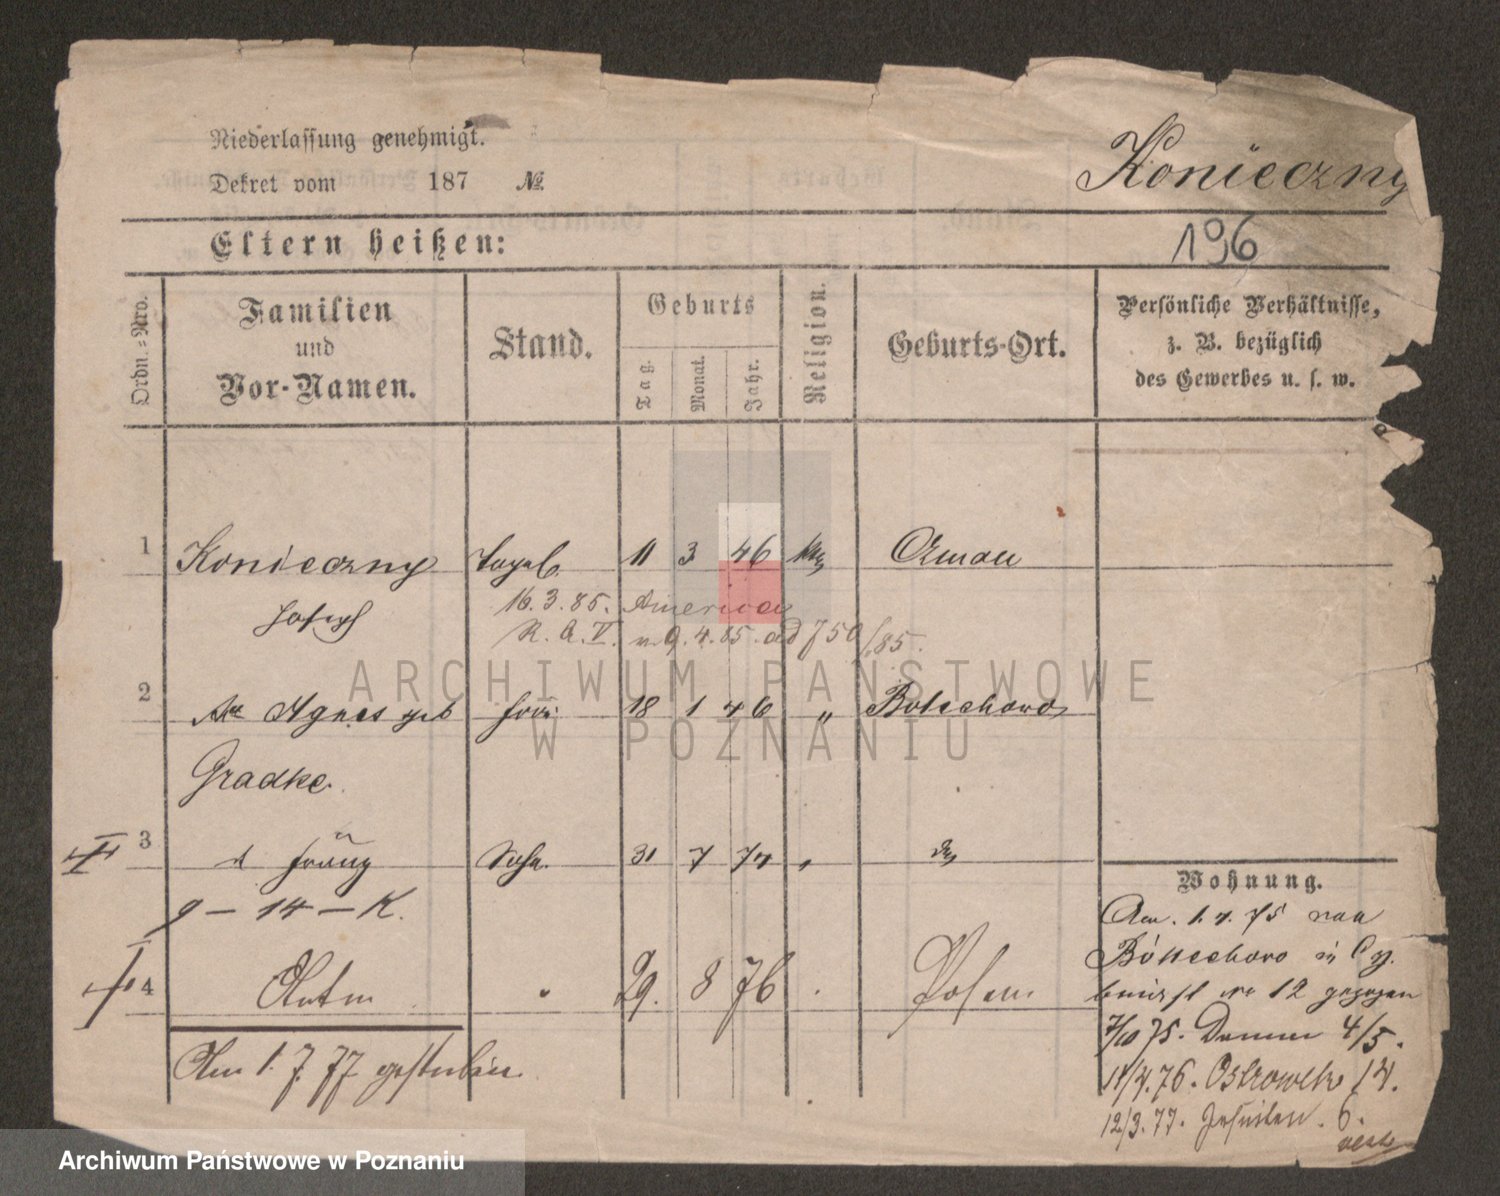 Niederlassung genehmigt.
Dekret vom 187 №
Konieczny
Eltern heißen:
196
Ordn.-Nro.
Familien
und
Vor-Namen.
Stand.
Geburts
Tag.
Monat.
Jahr.
Religion.
Geburts-Ort.
Persönliche Verhältnisse,
z. B. bezüglich
des Gewerbes u. s. w.
1 Konieczny Tagel. 11 3 46 kth
Joseph
16. 3. 85. America
R. A. V. v. 9. 4. 85. ad 750/85.
2 Agnes geb Frau 18 1 46 "
Gradke.
3 Franz Sohn 31 7 74 "
9 – 14 – K.
4 Anton " 29. 8 76 . Posen
Am 1. 7. 77 gestorben
Wohnung.
Am. 1. 4. 75 von
in
No 12 gezogen
7/10 75. Dammm 4/5.
14/4. 76. Ostrowek 14.
12/3. 77. Jesuiten. 6.
ARCHIWUM PAŃSTWOWE
W POZNANIU
Archiwum Państwowe w Poznaniu